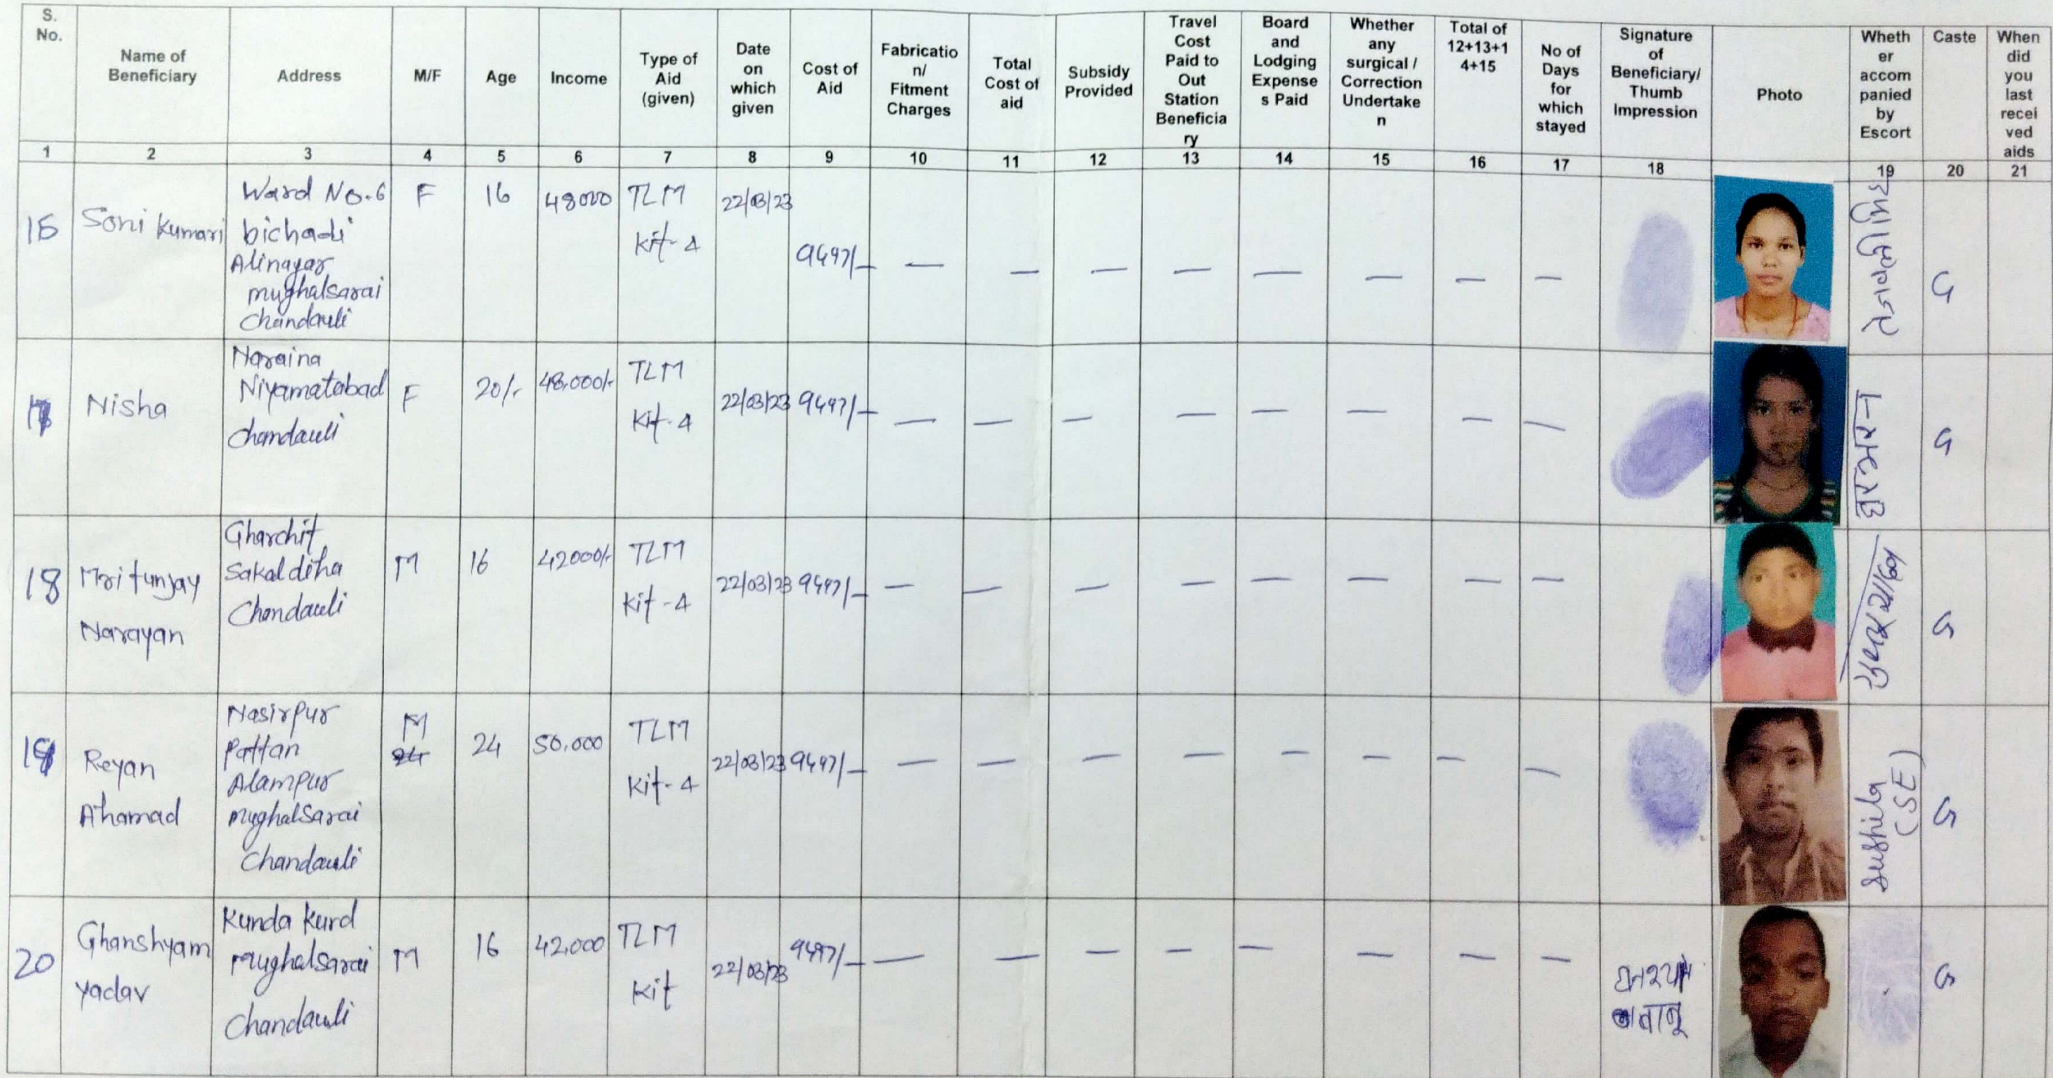 S. No.
Name of Beneficiary
Address
M/F
Age
Income
Type of Aid (given)
Date on which given
Cost of Aid
Fabricatio n/ Fitment Charges
Total Cost of aid
Subsidy Provided
Travel Cost Paid to Out Station Beneficia ry
Board and Lodging Expense s Paid
Whether any surgical / Correction Undertake n
Total of 12+13+1 4+15
No of Days for which stayed
Signature of Beneficiary/ Thumb Impression
Photo
Wheth er accom panied by Escort
Caste
When did you last recei ved aids
1 2 3 4 5 6 7 8 9 10 11 12 13 14 15 16 17 18 19 20 21
16 Soni Kumari
Ward No.6
bichadi
Alinagar
mughalsarai
Chandauli
F 16 48000
TLM
Kit-4
22/03/23 9497/- — — — — — — — — G
Nisha
Naraina
Niyamatabad
Chandauli
F 20/- 48,000/-
TLM
Kit-4
22/03/23 9497/- — — — — — — — — G
18 Mritunjay
Narayan
Gharchit
Sakaldiha
Chandauli
M 16 42000/-
TLM
Kit-4
22/03/23 9497/- — — — — — — — — G
19 Reyan
Ahamad
Nasirpur
Pattan
Alampur
mughalsarai
Chandauli
M
24
24 50,000
TLM
Kit-4
22/03/23 9497/- — — — — — — — —
Sushila
(SE)
G
20 Ghanshyam
yadav
Kunda Kurd
mughalsarai
Chandauli
M 16 42,000
TLM
Kit
22/03/23 9497/- — — — — — — — — G